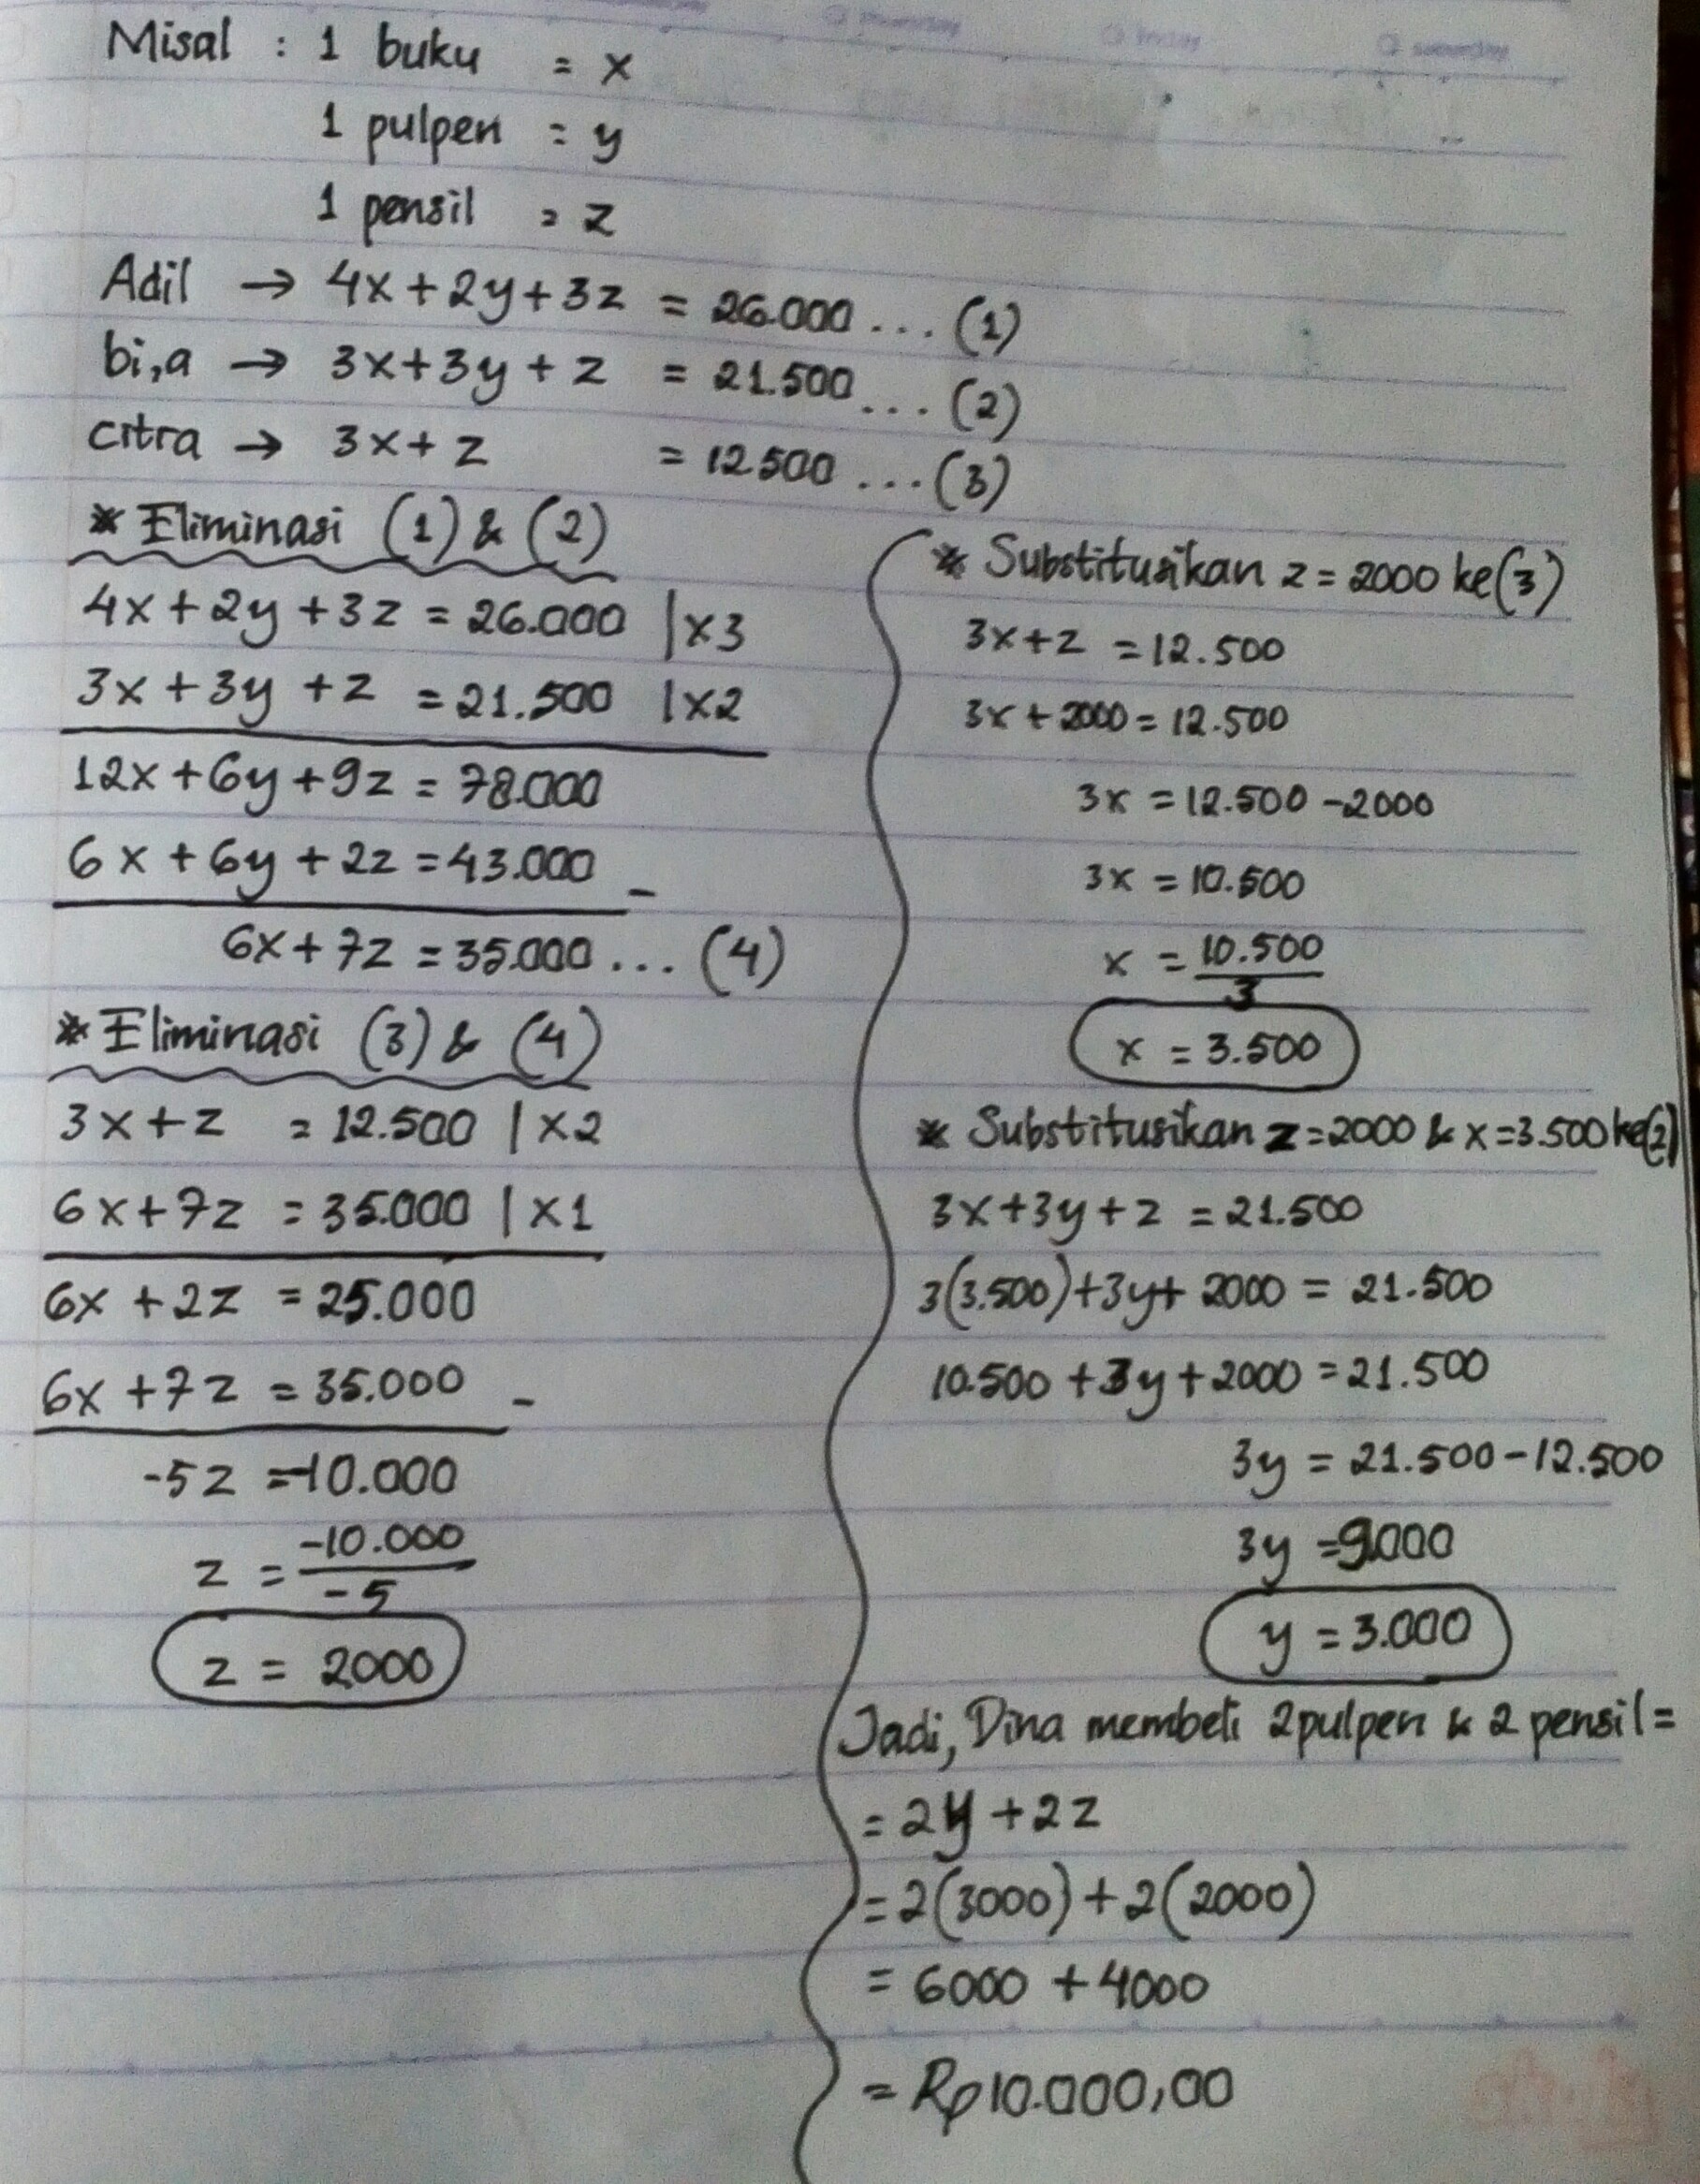 Misal : 1 buku = x
1 pulpen = y
1 pensil = z
Adil → 4x + 2y + 3z = 26.000 ... (1)
bi,a → 3x + 3y + z = 21.500 ... (2)
citra → 3x + z = 12.500 ... (3)
* Eliminasi (1) & (2)
4x + 2y + 3z = 26.000 | x3
3x + 3y + z = 21.500 | x2
12x + 6y + 9z = 78.000
6x + 6y + 2z = 43.000 -
6x + 7z = 35.000 ... (4)
* Eliminasi (3) & (4)
3x + z = 12.500 | x2
6x + 7z = 35.000 | x1
6x + 2z = 25.000
6x + 7z = 35.000 -
-5z = -10.000
z = -10.000
-5
z = 2000
* Substitusikan z = 2000 ke (3)
3x + z = 12.500
3x + 2000 = 12.500
3x = 12.500 - 2000
3x = 10.500
x = 10.500
3
x = 3.500
* Substitusikan z = 2000 & x = 3.500 ke (2)
3x + 3y + z = 21.500
3(3.500) + 3y + 2000 = 21.500
10.500 + 3y + 2000 = 21.500
3y = 21.500 - 12.500
3y = 9000
y = 3.000
Jadi, Dina membeli 2 pulpen & 2 pensil =
= 2y + 2z
= 2(3000) + 2(2000)
= 6000 + 4000
= Rp10.000,00